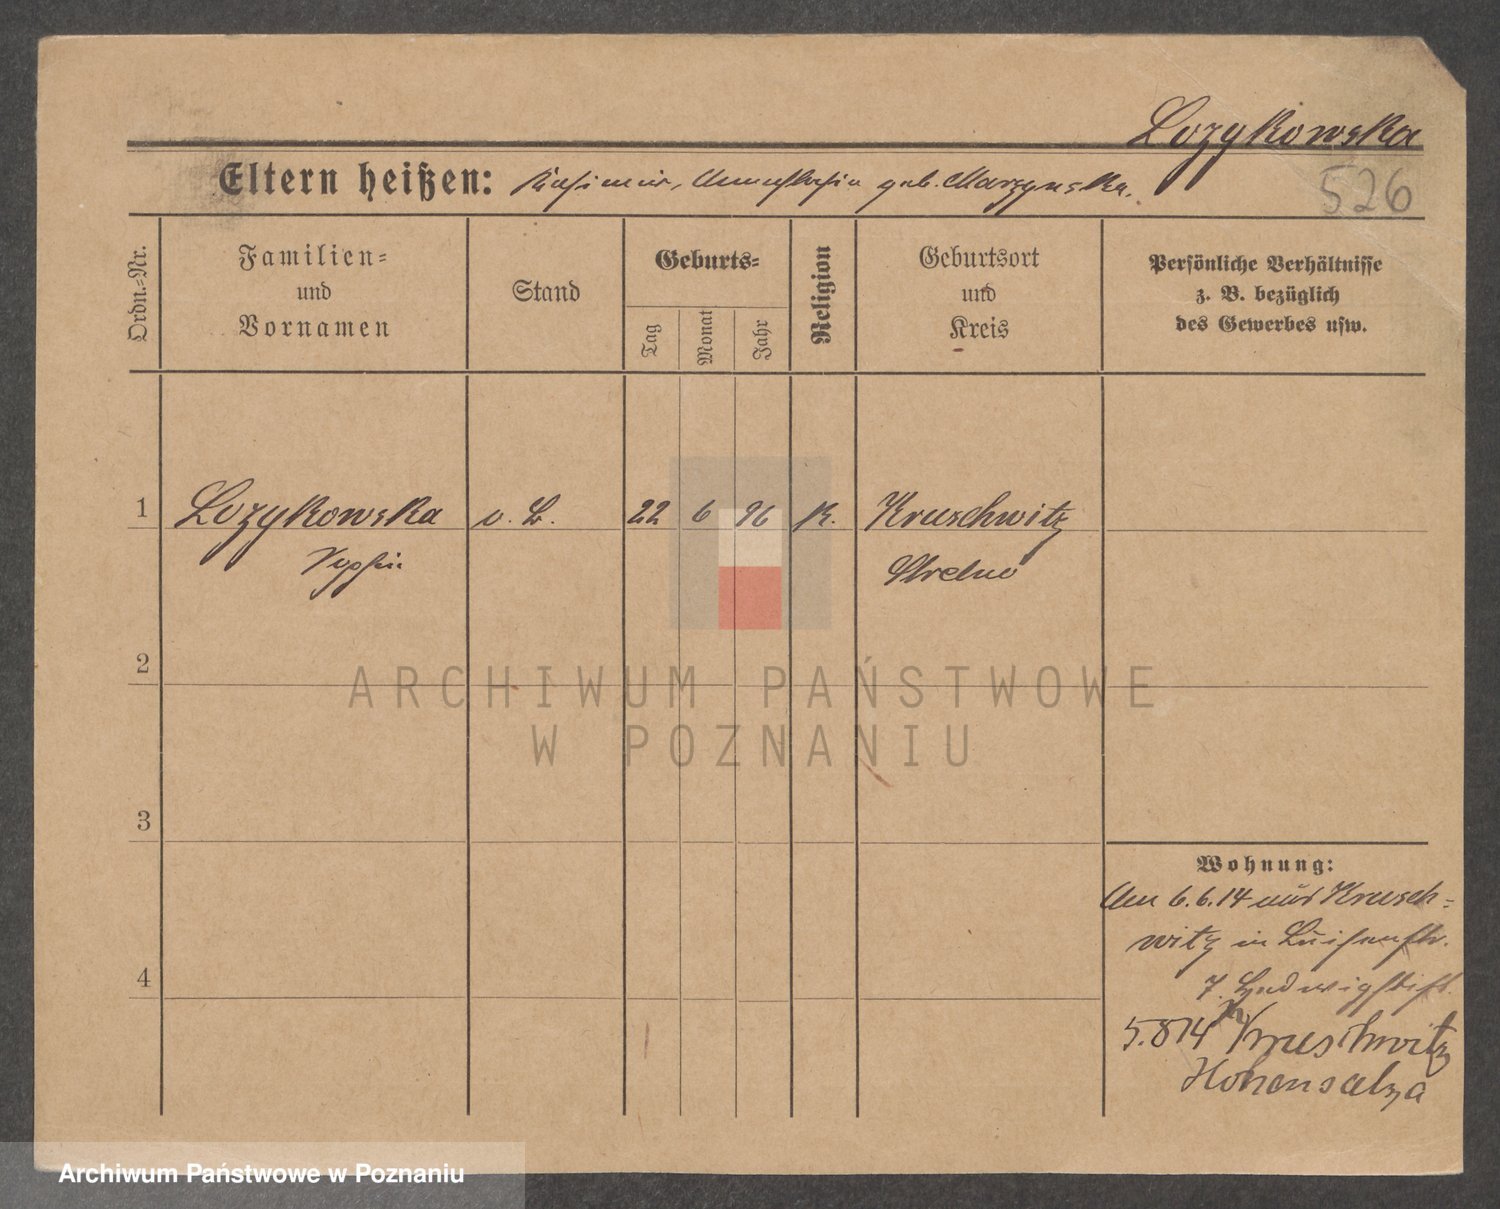 Lozykowska
526
Eltern heißen: Kasimir, Anastasia geb. Marzynska.
Ordn.-Nr.
Familien-
und
Vornamen
Stand
Geburts-
Tag
Monat
Jahr
Religion
Geburtsort
und
Kreis
Persönliche Verhältnisse
z. B. bezüglich
des Gewerbes usw.
1 Lozykowska o. B. 22 6 96 K. Kruschwitz
Sophie
Strelno
2
ARCHIWUM PAŃSTWOWE
W POZNANIU
3
Wohnung:
Am 6.6.14 aus Krusch-
witz in Luisenstr.
4
7. Hedwigstift.
5.814 Kruschwitz
Hohensalza
Archiwum Państwowe w Poznaniu